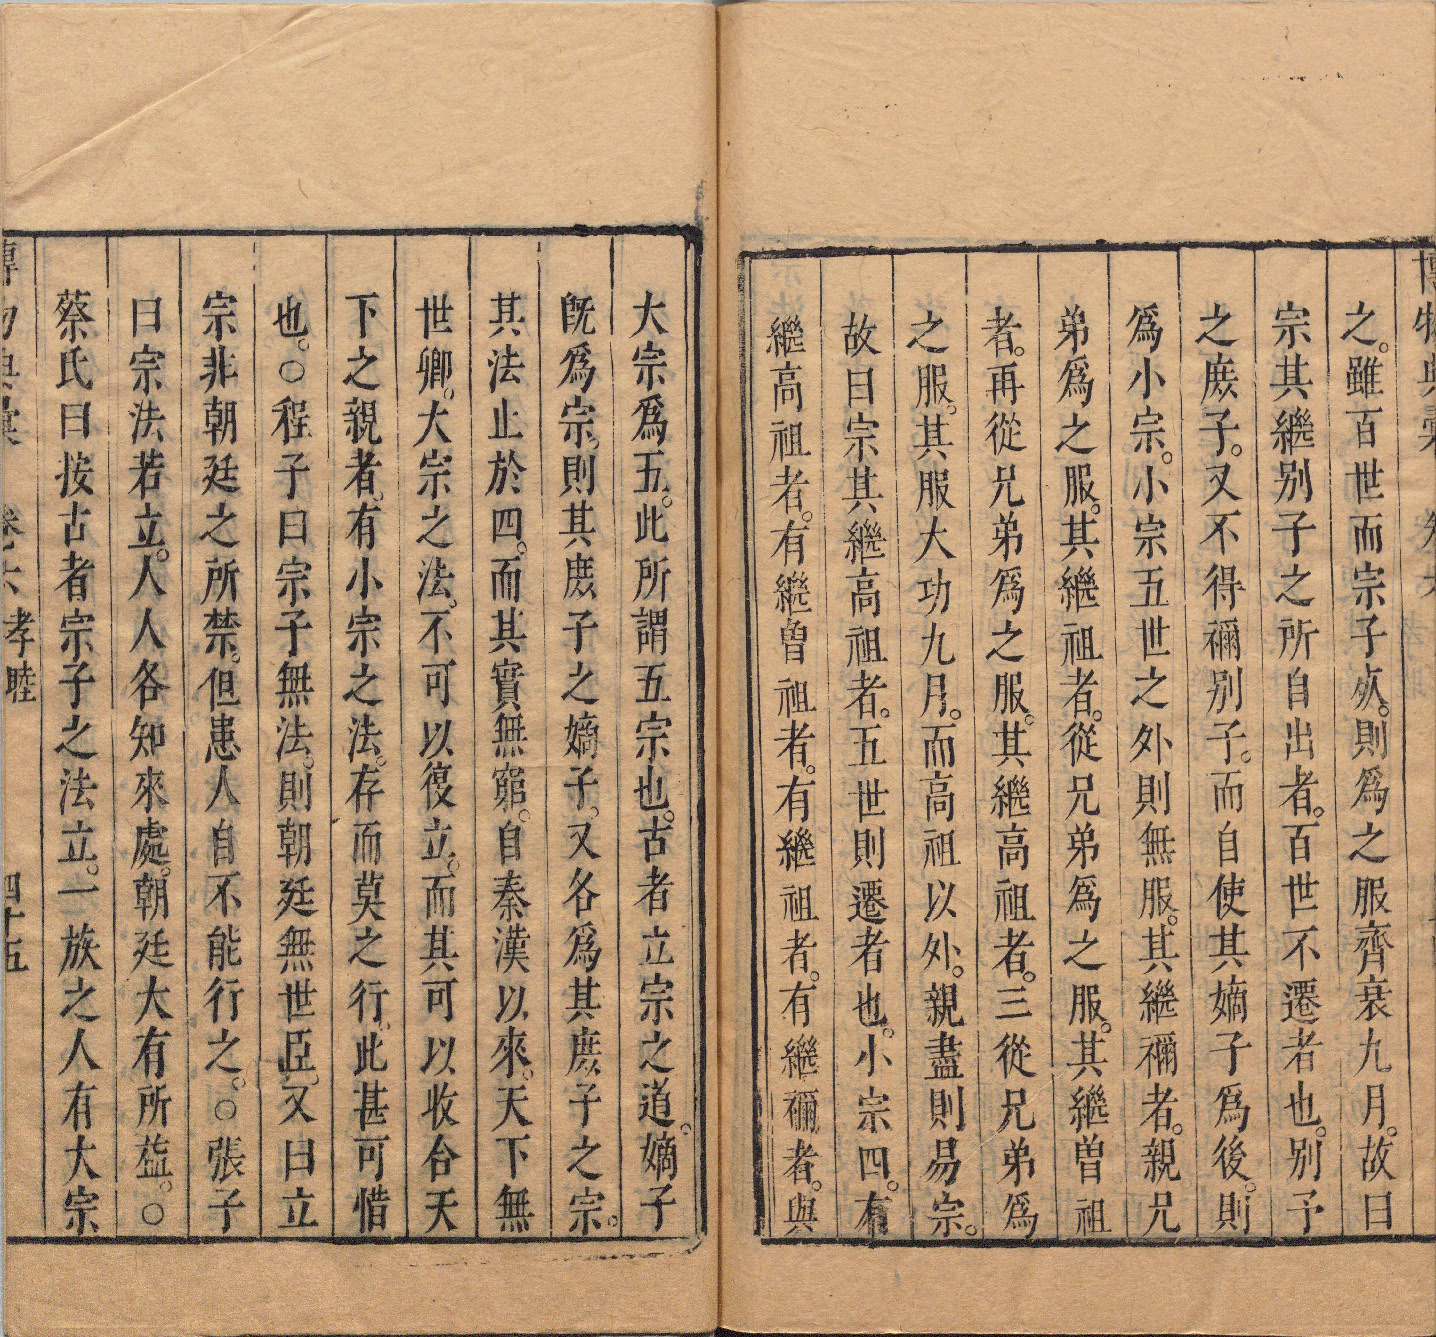 博物典彙
之。雖百世而宗子死。則爲之服齊衰九月。故曰
宗其繼别子之所自出者。百世不遷者也。别子
之庶子。又不得禰别子。而自使其嫡子爲後。則
爲小宗。小宗五世之外則無服。其繼禰者。親兄
弟爲之服。其繼祖者。從兄弟爲之服。其繼曾祖
者。再從兄弟爲之服。其繼高祖者。三從兄弟爲
之服。其服大功九月。而高祖以外。親盡則易宗。
故曰宗其繼高祖者。五世則遷者也。小宗四。有
繼高祖者。有繼曾祖者。有繼祖者。有繼禰者。與
大宗爲五。此所謂五宗也。古者立宗之道。嫡子
旣爲宗。則其庶子之嫡子。又各爲其庶子之宗。
其法止於四。而其實無窮。自秦漢以來。天下無
世卿。大宗之法。不可以復立。而其可以收合天
下之親者。有小宗之法。存而莫之行。此甚可惜
也。○程子曰宗子無法。則朝廷無世臣。又曰立
宗非朝廷之所禁。但患人自不能行之。○張子
曰宗法若立。人人各知來處。朝廷大有所益。○
蔡氏曰按古者宗子之法立。一族之人有大宗
博物典彙 卷六 孝睦 四十五